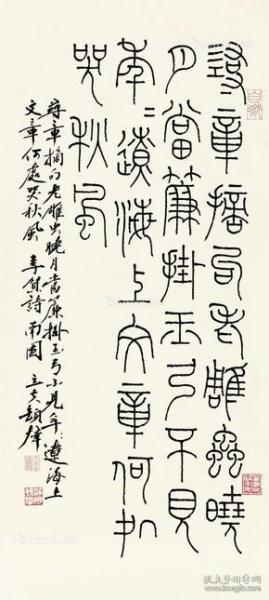 尋章摘句老雕蟲曉
月當簾掛玉弓不見
年〻遼海上文章何処
哭秋風
尋章摘句老雕虫曉月當簾掛玉弓不見年〻遼海上
文章何處哭秋風 李賀詩 南園